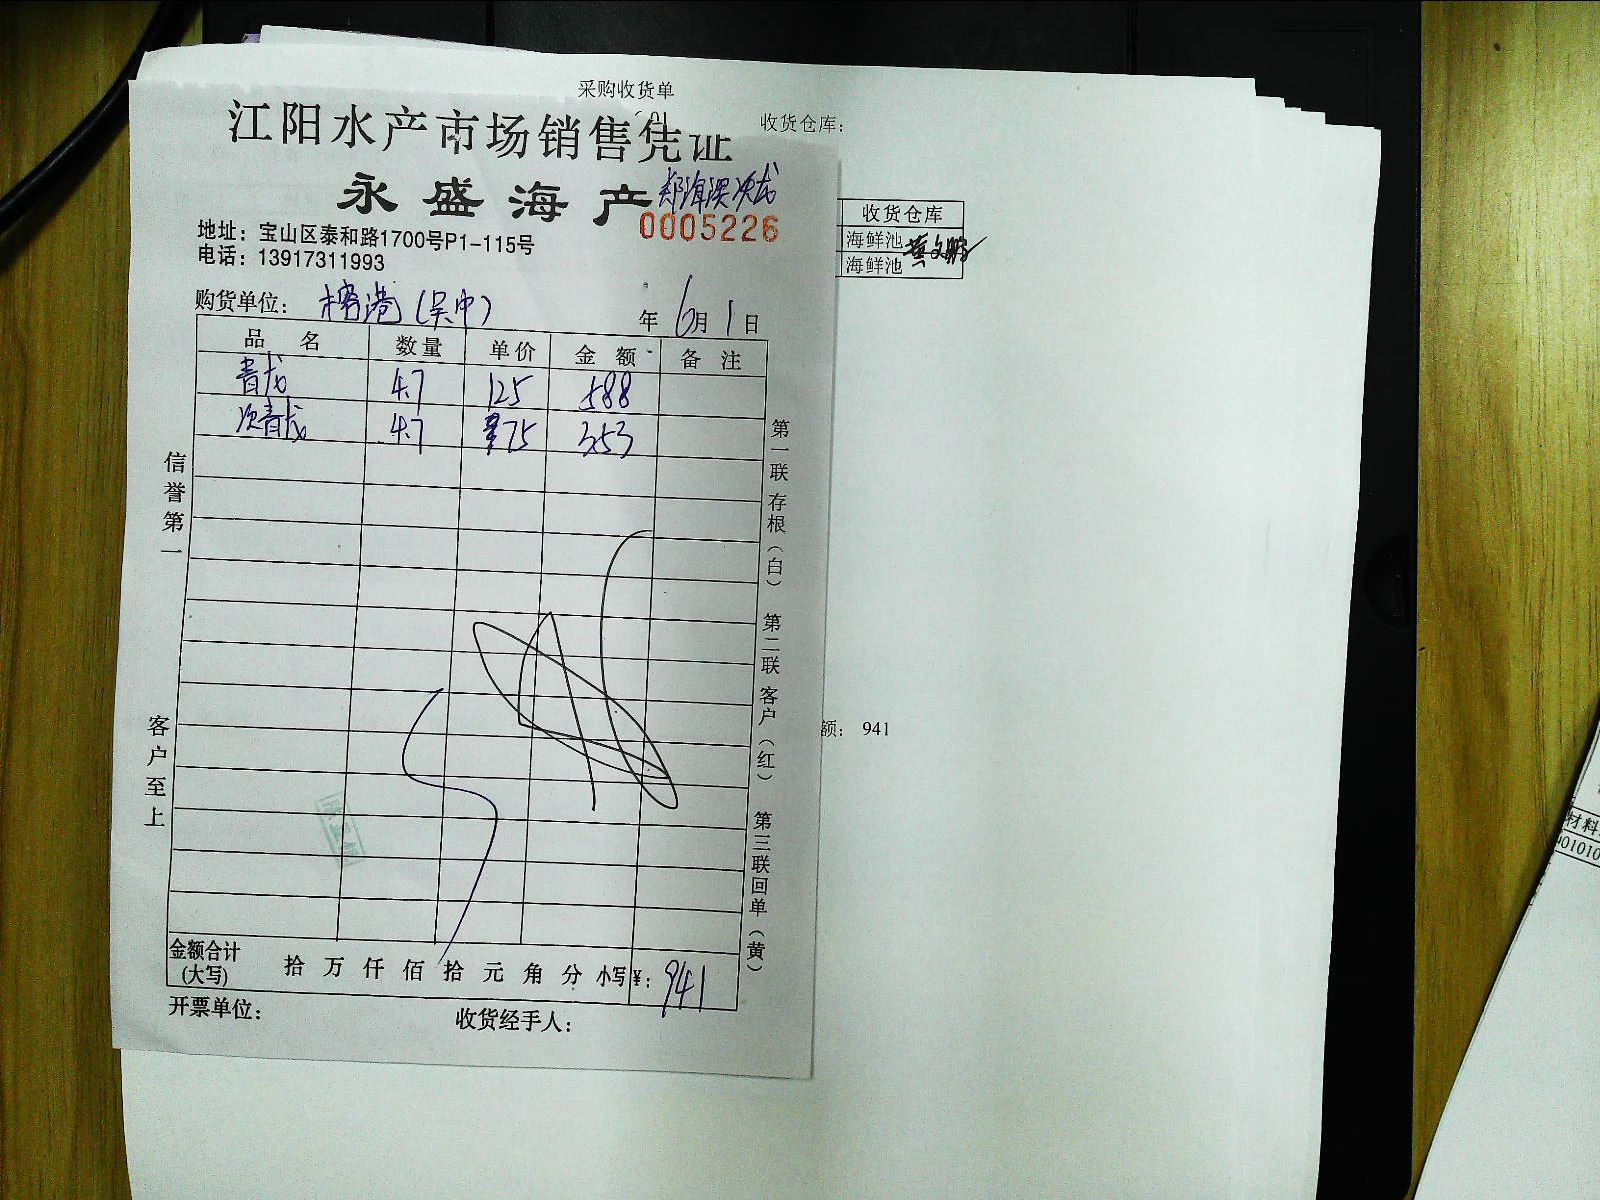 采购收货单
收货仓库：
江阳水产市场销售凭证
永盛海产
0005226
地址：宝山区泰和路1700号P1-115号
电话：13917311993
购货单位：榕港（吴中）
年 6月 1日
品名 数量 单价 金额 备注
青龙 4.7 125 588
次青龙 4.7 75 353
信誉第一
客户至上
第一联存根（白）
第二联客户（红）
第三联回单（黄）
金额合计（大写） 拾 万 仟 佰 拾 元 角 分 小写¥：941
开票单位：
收货经手人：
收货仓库
海鲜池
海鲜池
额： 941
材料